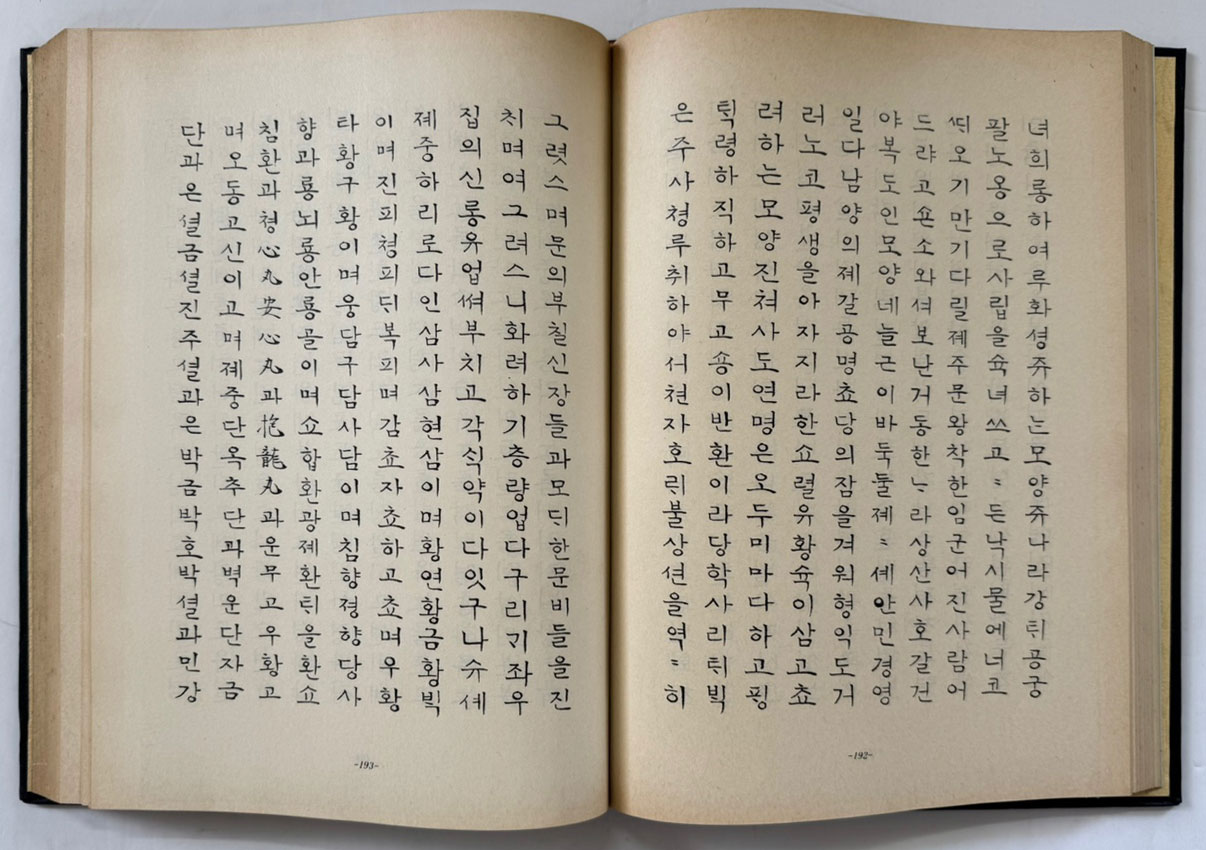 녀희롱하여루화셩쥬하는모양쥬나라강ᄐᆡ공궁
팔노옹으로사립을슉녀쓰고〻든낙시물에너코
ᄯᅵ오기만기다릴졔주문왕착한임군어진사람어
드랴고숀소와셔보난거동한ᄂᆞ라상산사호갈건
야복도인모양네늘근이바둑둘졔〻셰안민경영
일다남양의졔갈공명쵸당의잠을겨워형익도거
러노코평생을아자지라한쇼렬유황슉이삼고쵸
려하는모양진쳐사도연명은오두미마다하고ᄑᆡᆼ
ᄐᆡᆨ령하직하고무고숑이반환이라당학사리ᄐᆡᄇᆡᆨ
은주사쳥루취하야서쳔자호ᄅᆡ불상션을역〻히
-192-
그렷스며문의부칠신장들과모ᄃᆡ한문비들을진
치며여그려스니화려하기층량업다구리ᄀᆡ좌우
집의신롱유업써부치고각식약이다잇구나슈셰
졔중하리로다인삼사삼현삼이며황연황금황ᄇᆡᆨ
이며진피쳥피ᄃᆡ복피며감쵸자쵸하고쵸며우황
타황구황이며웅담구담사담이며침향졍향당사
향과룡뇌룡안룡골이며쇼합환광졔환ᄐᆡ을환쇼
침환과쳥心丸安心丸과抱龍丸과운무고우황고
며오동고신이고며졔중단옥추단과벽운단자금
단과은셜금셜진주셜과은박금박호박셜과민강
-193-